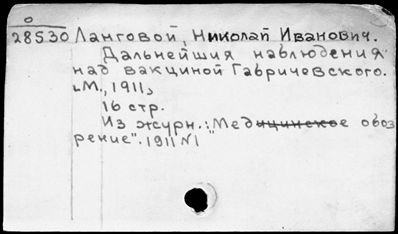 о
28530 Ланговой, Николай Иванович.
Дальнейшия наблюдения
над вакциной Габричевского.
М., 1911,
16 стр.
Из журн.: "Медицинское обоз
рение". 1911 №1